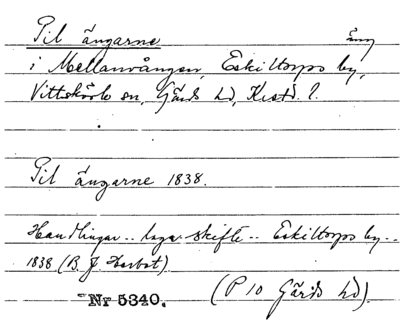 Pil ängarne äng
i Mellanvången, Eskiltorps by,
Vittskövle sn, Gärds hd, Krist. l.
Pil ängarne 1838.
Handlingar .. laga skifte .. Eskiltorps by ..
1838 (B. J.
Nr 5340. (P 10 Gärds hd).